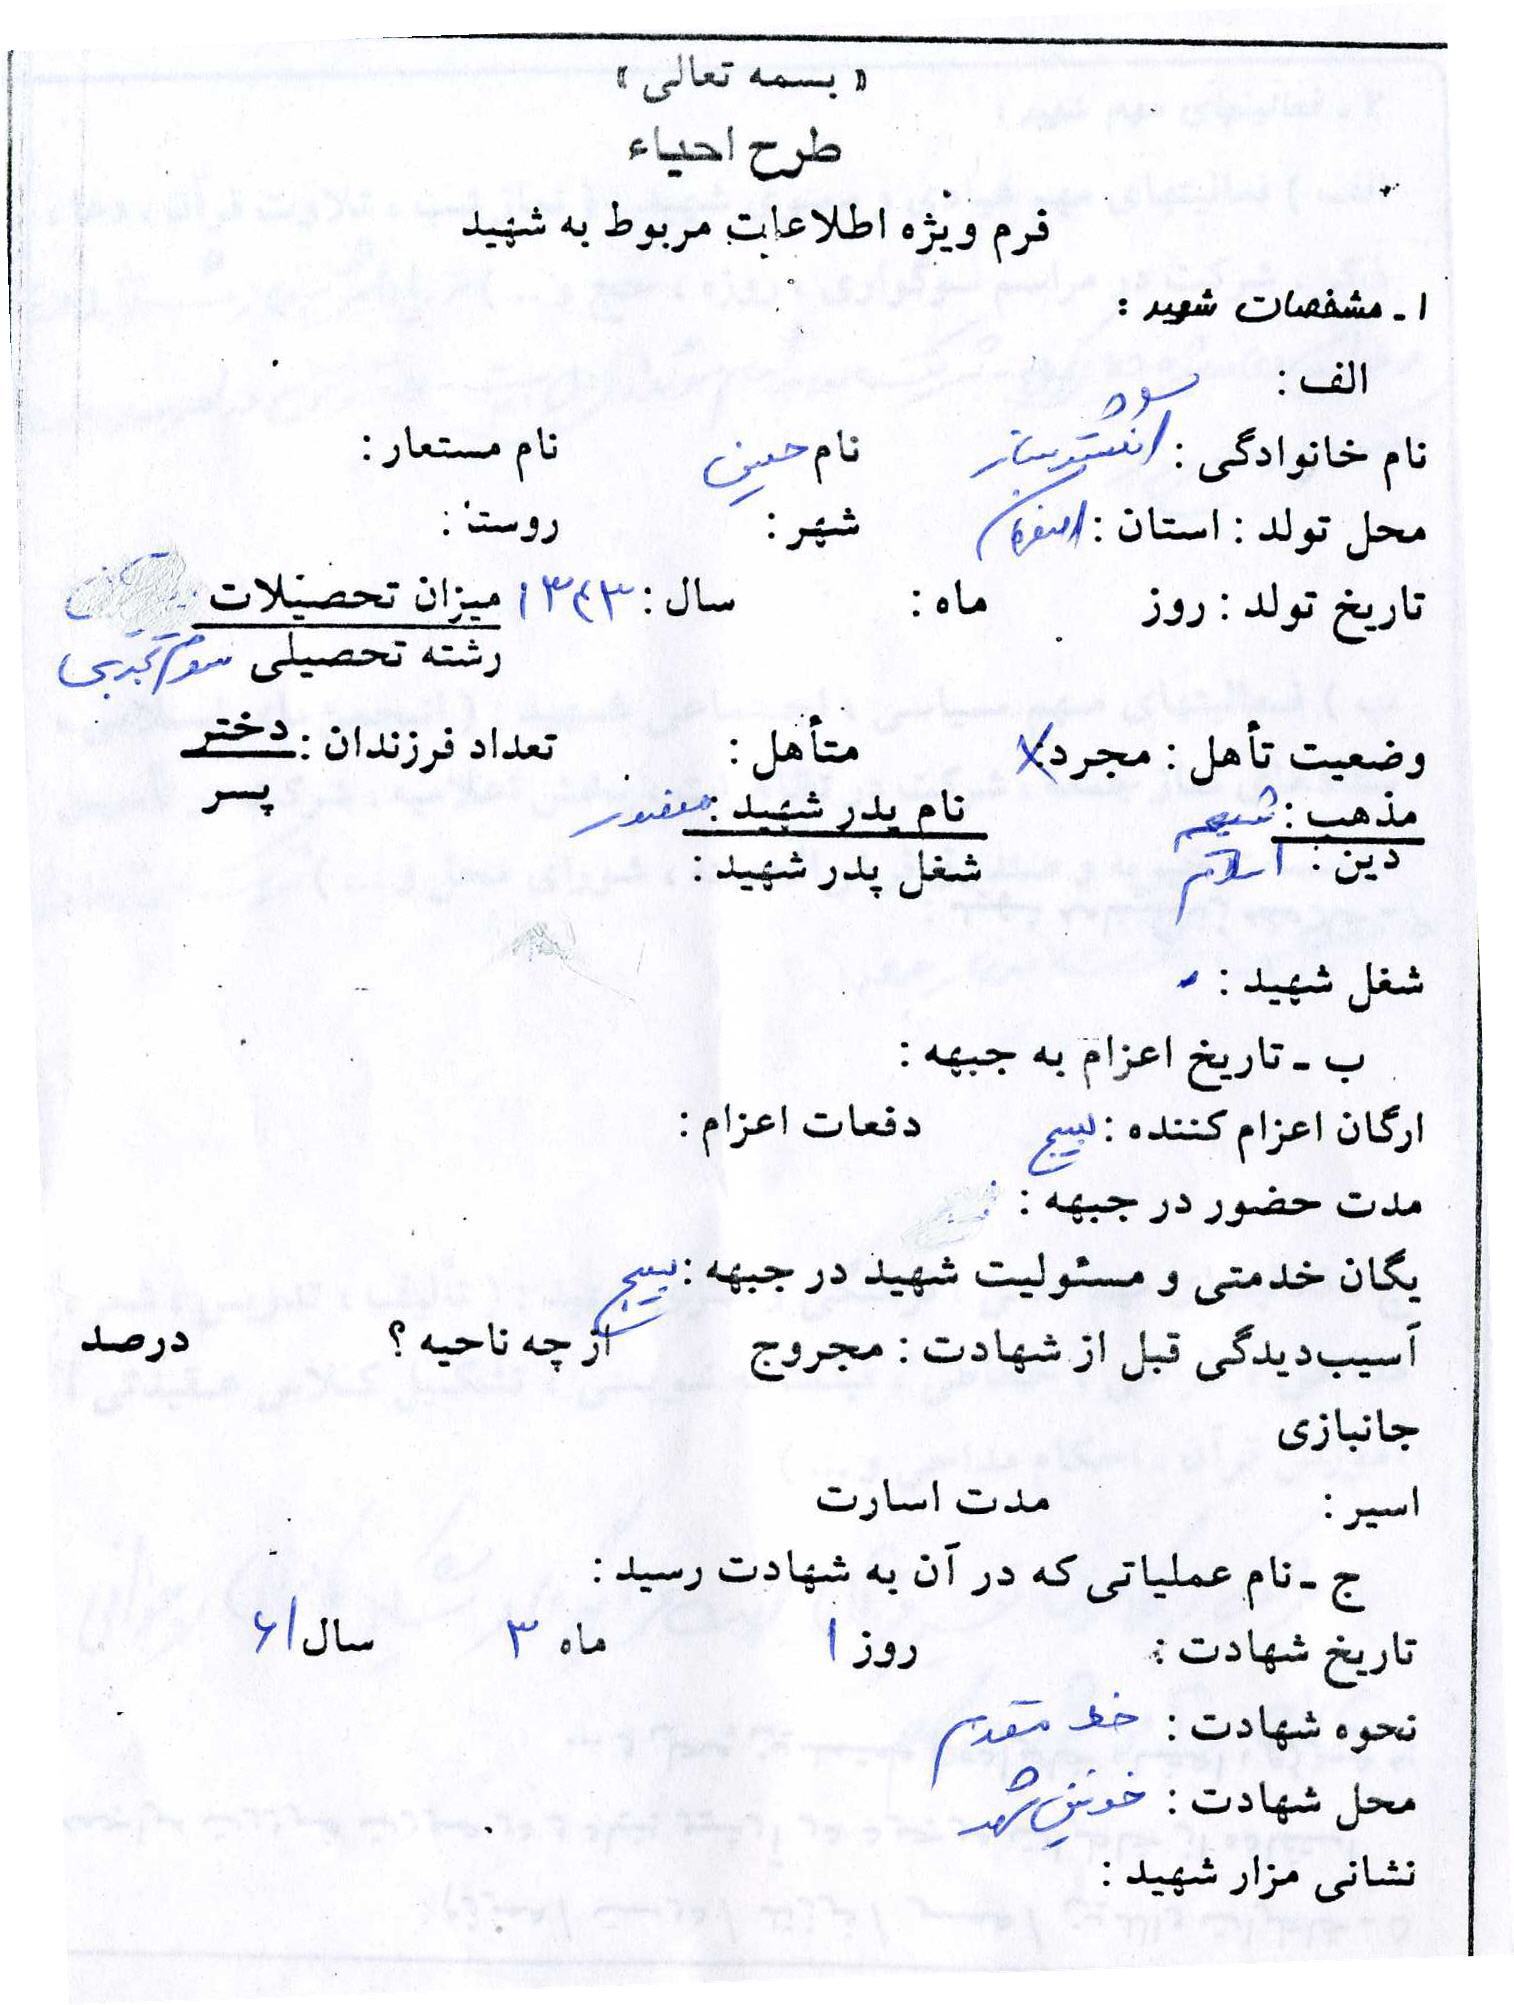 « بسمه تعالی »
طرح احیاء
فرم ویژه اطلاعات مربوط به شهید
۱ ـ مشخصات شهید :
الف :
نام خانوادگی : انگشتر ساز نام حسین نام مستعار :
محل تولد : استان : اصفهان شهر : روستا :
تاریخ تولد : روز ماه : سال : ۱۳۴۳ میزان تحصیلات
رشته تحصیلی سوم تجربی
وضعیت تأهل : مجرد X متأهل : تعداد فرزندان : دختر
پسر
مذهب : شیعه نام پدر شهید :
دین : اسلام شغل پدر شهید :
شغل شهید : -
ب ـ تاریخ اعزام به جبهه :
ارگان اعزام کننده : بسیج دفعات اعزام :
مدت حضور در جبهه :
یگان خدمتی و مسئولیت شهید در جبهه : بسیج
آسیب‌دیدگی قبل از شهادت : مجروح از چه ناحیه ؟ درصد
جانبازی
اسیر : مدت اسارت
ج ـ نام عملیاتی که در آن به شهادت رسید :
تاریخ شهادت : روز ۱ ماه ۳ سال ۶۱
نحوه شهادت : خط مقدم
محل شهادت : خونین شهر
نشانی مزار شهید :